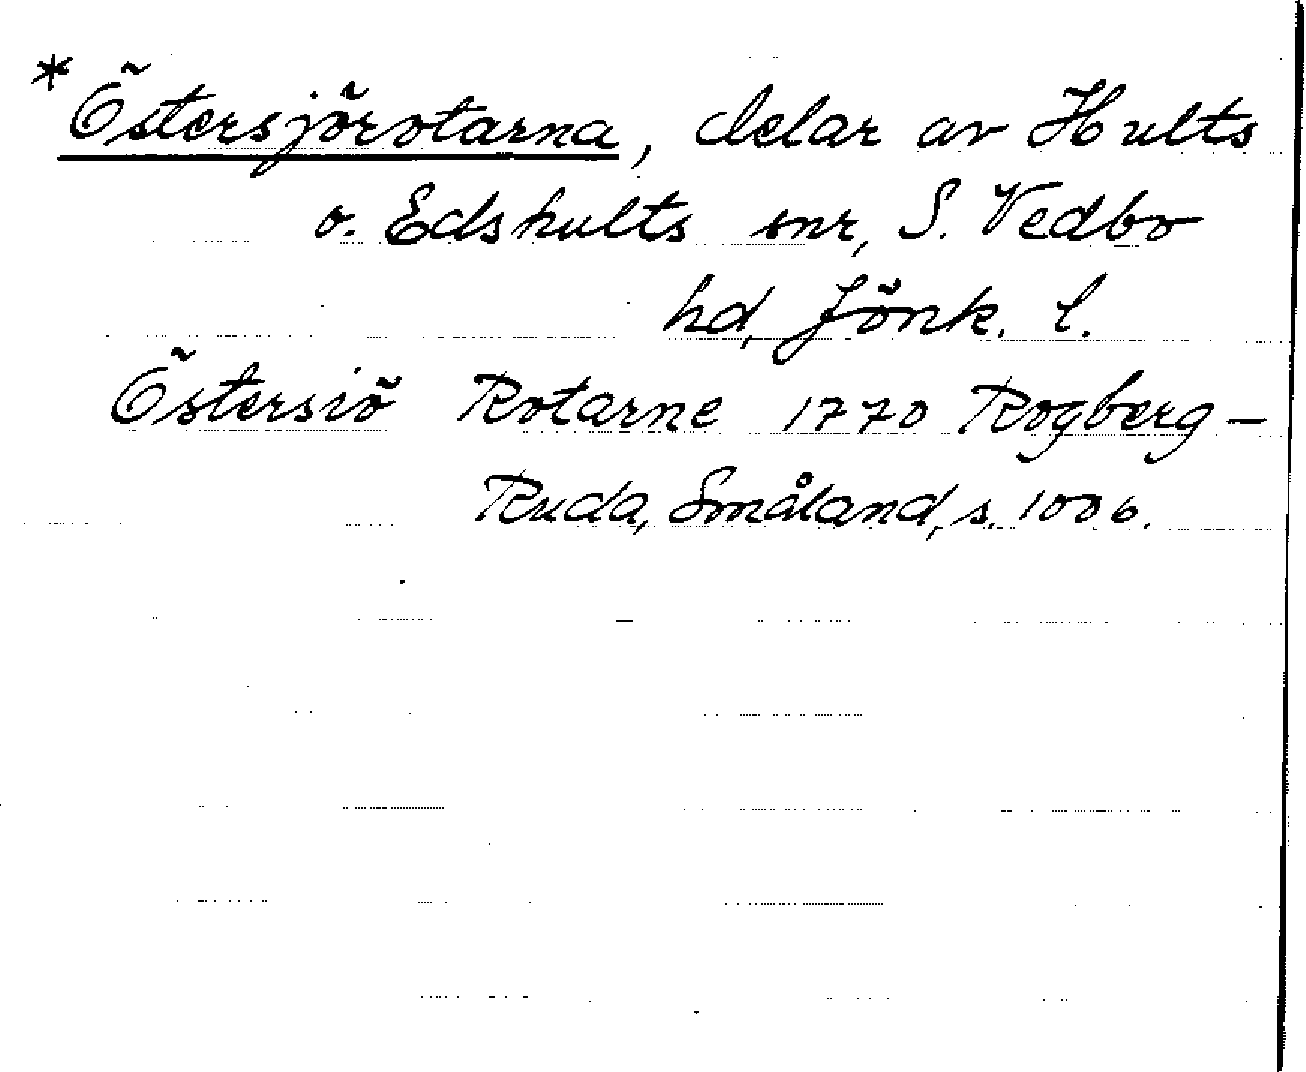 *Östersjörotarna, delar av Hults
o. Edshults snr, S. Vedbo
hd, Jönk. l.
Östersiö Rotarne 1770 Rogberg-
Ruda, Småland, s. 1006.